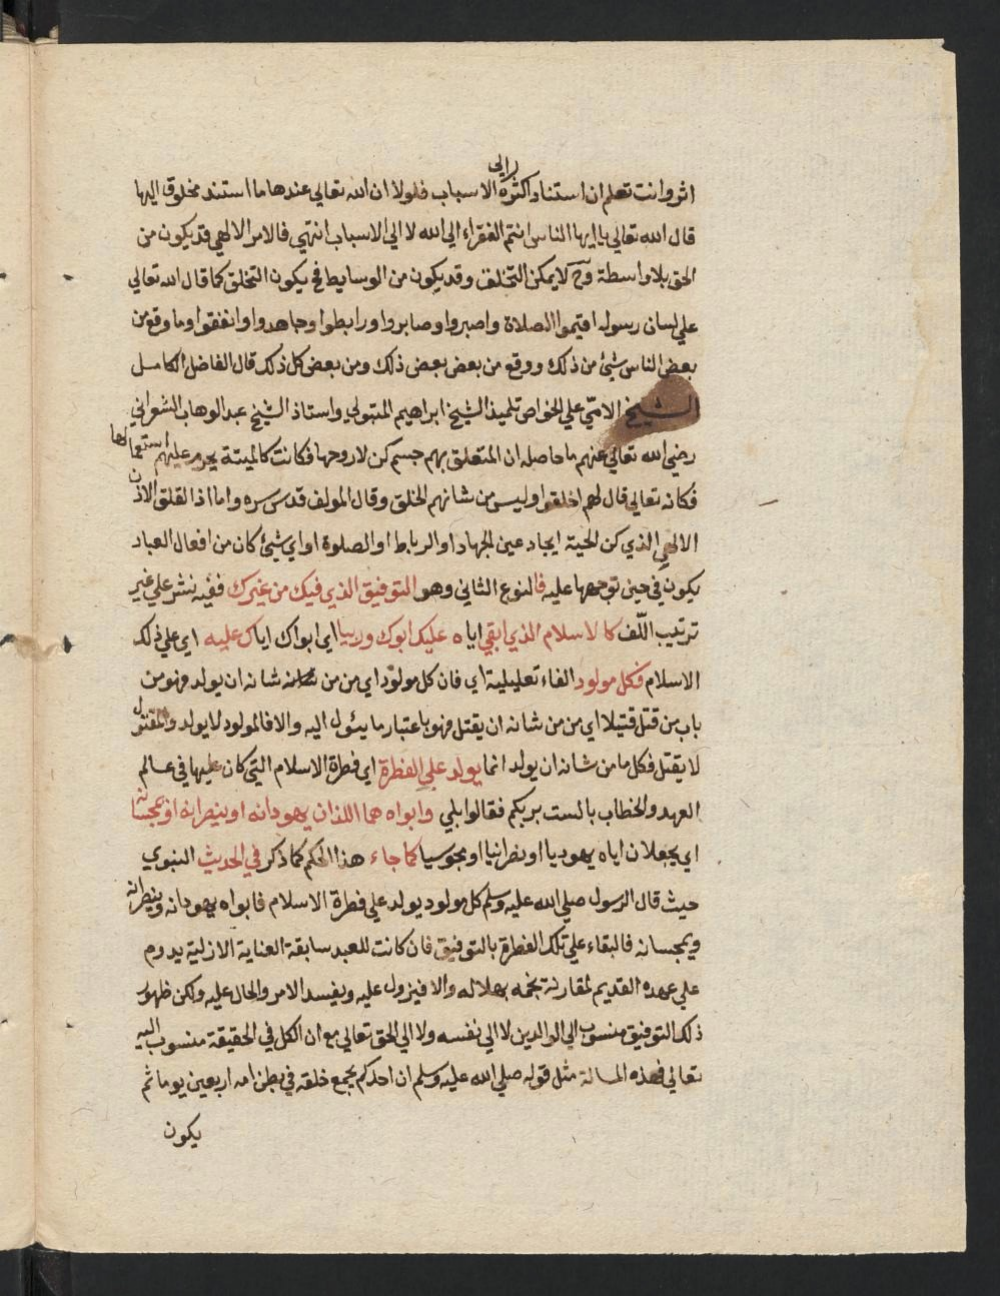 الى
اثر وانت تعلم ان استناد اكثره الاسباب فلولا ان الله تعالى عندها ما استند مخلوق اليها
قال الله تعالي يا ايها الناس انتم الفقراء الي الله لا الي الاسباب انتهي فالامر الالهي قد يكون من
الحق بلا واسطة وح لا يمكن التخلف وقد يكون من الوسايط فح يكون التخلق كما قال الله تعالي
علي لسان رسوله اقيموا الصلاة واصبروا وصابروا ورابطوا وجاهدوا وانفقوا وما وقع من
بعض الناس شئ من ذلك ووقع من بعض بعض ذلك ومن بعض كل ذلك قال الفاضل الكامل
الشيخ الامي علي الخواص تلميذ الشيخ ابراهيم المتبولي واستاذ الشيخ عبد الوهاب الشعراني
رضي الله تعالي عنهم ما حاصله ان المتعلق بهم جسم كن لا روحها فكانت كالميتة يحرم عليهم استعمالها
فكانه تعالي قال لهم اخلقوا وليس من شانهم الخلق وقال المولف قدس سره واما اذا تعلق الاذن
الالهي الذي كن الحية ايجاد عين الجهاد او الرباط او الصلوة او اي شئ كان من افعال العباد
يكون في حين توجهها عليه فالنوع الثاني وهو التوفيق الذي فيك من غيرك ففيه نشر علي غير
ترتيب اللف كالاسلام الذي ابقي اياه عليك ابوك وربيا اي ابواك اياك عليه اي علي ذلك
الاسلام فكل مولود الفاء تعليلية اي فان كل مولود اي من من شانه ان يولد فهو من
باب من قتل قتيلا اي من من شانه ان يقتل فهو باعتبار ما يئول اليه والا فالمولود لا يولد والمقتول
لا يقتل فكل ما من شانه ان يولد انما يولد علي الفطرة اي فطرة الاسلام التي كان عليها في عالم
العهد والخطاب بالست بربكم فقالوا بلي وابواه هما اللذان يهودانه او ينصرانه او يمجسانه
اي يجعلان اياه يهوديا او نصرانيا او مجوسيا كما جاء هذا الحكم كما ذكر في الحديث النبوي
حيث قال الرسول صلي الله عليه وسلم كل مولود يولد علي فطرة الاسلام فابواه يهودانه وينصرانه
ويمجسانه فالبقاء علي تلك الفطرة بالتوفيق فان كانت للعبد سابقة العناية الازلية يدوم
علي عهده القديم لمقارنة نجمه بهلاله والا فيزول عليه ويفسد الامر والحال عليه ولكن ظهور
ذلك التوفيق منسوب الي الوالدين لا الي نفسه ولا الي الحق تعالي مع ان الكل في الحقيقة منسوب اليه
تعالي فهذه المسالة مثل قوله صلي الله عليه وسلم ان احدكم يجمع خلقه في بطن امه اربعين يوما ثم
يكون